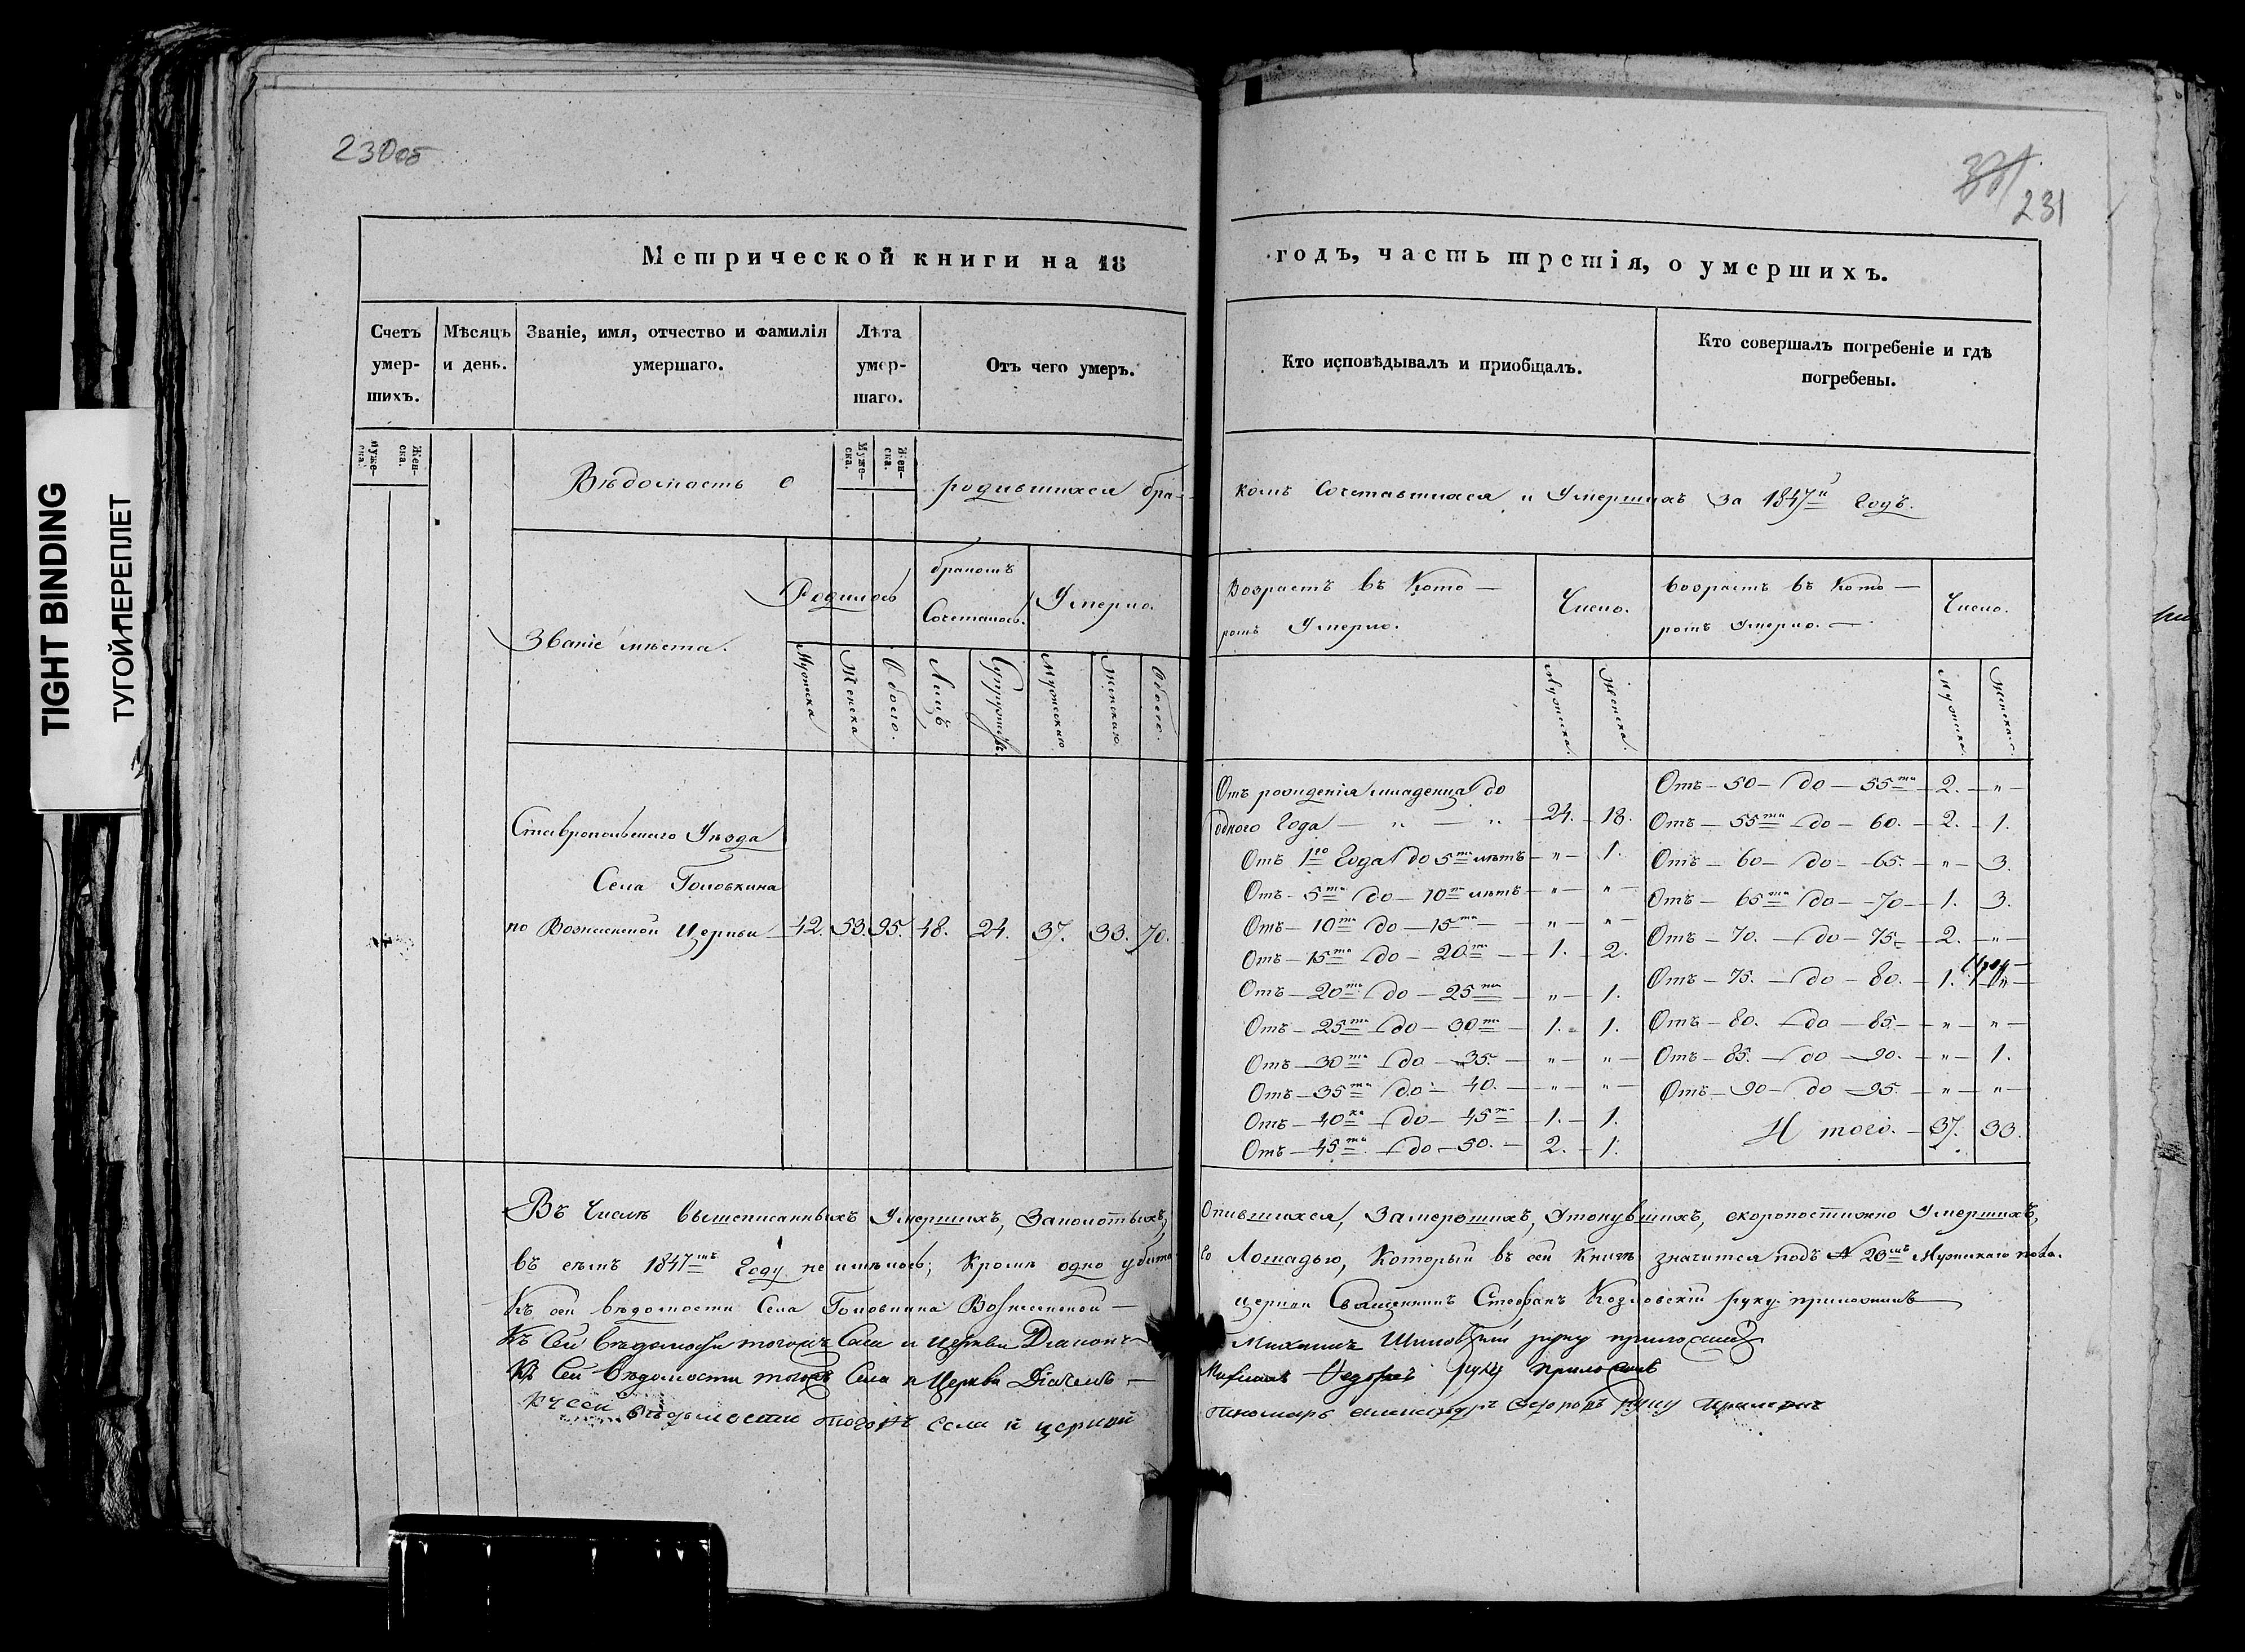 230об
331
231
TIGHT BINDING
ТУГОЙ ПЕРЕПЛЕТ
Метрической книги на 18
годъ, часть третія, о умершихъ.
Счетъ умер-шихъ.
Мѣсяцъ и день.
Званіе, имя, отчество и фамилія умершаго.
Лѣта умер-шаго.
Отъ чего умеръ.
Кто исповѣдывалъ и пріобщалъ.
Кто совершалъ погребеніе и гдѣ погребены.
Муже-ска.
Жен-ска.
Муже-ска.
Жен-ска.
Вѣдомость о родившихся бра-
комъ Сочетавшихся и Умершихъ За 1847й Годъ.
Званіе мѣста.
Родилось
бракомъ Сочеталось.
Умерло.
Мужеска
Женска
Обоего.
Лицъ
Супружествъ
Мужескаго
Женскаго
Обоего.
Возрастъ въ Кото—ромъ Умерло.
Число.
Возрастъ въ Кото—ромъ Умерло.—
Число.
Мужеска.
Женска.
Мужеска.
Женска.
Ставропольскаго Уѣзда
Села Головкина
по Вознесенской Церкви 42. 53. 95. 48. 24. 37. 33. 70.
Отъ рожденія младенца до
одного Года — " — " — 24. — 18.
Отъ 1го Года до 5ти лѣтъ — " — 1.
Отъ — 5ти до — 10ти лѣтъ — " — " —
Отъ — 10ти до — 15ти — " — " —
Отъ — 15ти до — 20ти — 1. — 2.
Отъ — 20ти до — 25ти — " — 1.
Отъ — 25ти до — 30ти — 1. — 1.
Отъ — 30ти до — 35. — " — " —
Отъ — 35ти до — 40. — " — " —
Отъ — 40ка до — 45ти — 1. — 1.
Отъ — 45ти до — 50. — 2. — 1.
Отъ — 50 — до — 55ти — 2. — " —
Отъ — 55ти до — 60. — 2. — 1.
Отъ — 60 — до — 65. — " — 3.
Отъ — 65ти до — 70 — 1. — 3.
Отъ — 70. — до — 75. — 2. — " —
Отъ — 75. — до — 80. — 1. — " —
Отъ — 80. — до — 85. — " — " —
Отъ — 85. — до — 90. — " — 1.
Отъ — 90 — до — 95. — " — " —
И того. — 37. 33.
Въ Числѣ вышеписанныхъ Умершихъ, Заколотыхъ, Опившихся, Замерзшихъ, Утонувшихъ, скоропостижно Умершихъ,
въ семъ 1847мъ Году не имѣлось; Кромѣ одно убита го Лошадью, Который въ сей Книгѣ значится подъ № 20мъ Мужскаго пола.
Къ сей вѣдомости Села Головкина Вознесенской — церкви Священникъ Стефанъ Козловскій руку приложилъ
Къ Сей вѣдомости тогожъ Села и Церкви Діаконъ — Михаилъ руку приложилъ
Къ Сей вѣдомости тогожъ Села и Церкви Дьячекъ — руку приложилъ
Къ сей вѣдомости тогожъ села и церкви пономарь Александръ руку приложилъ